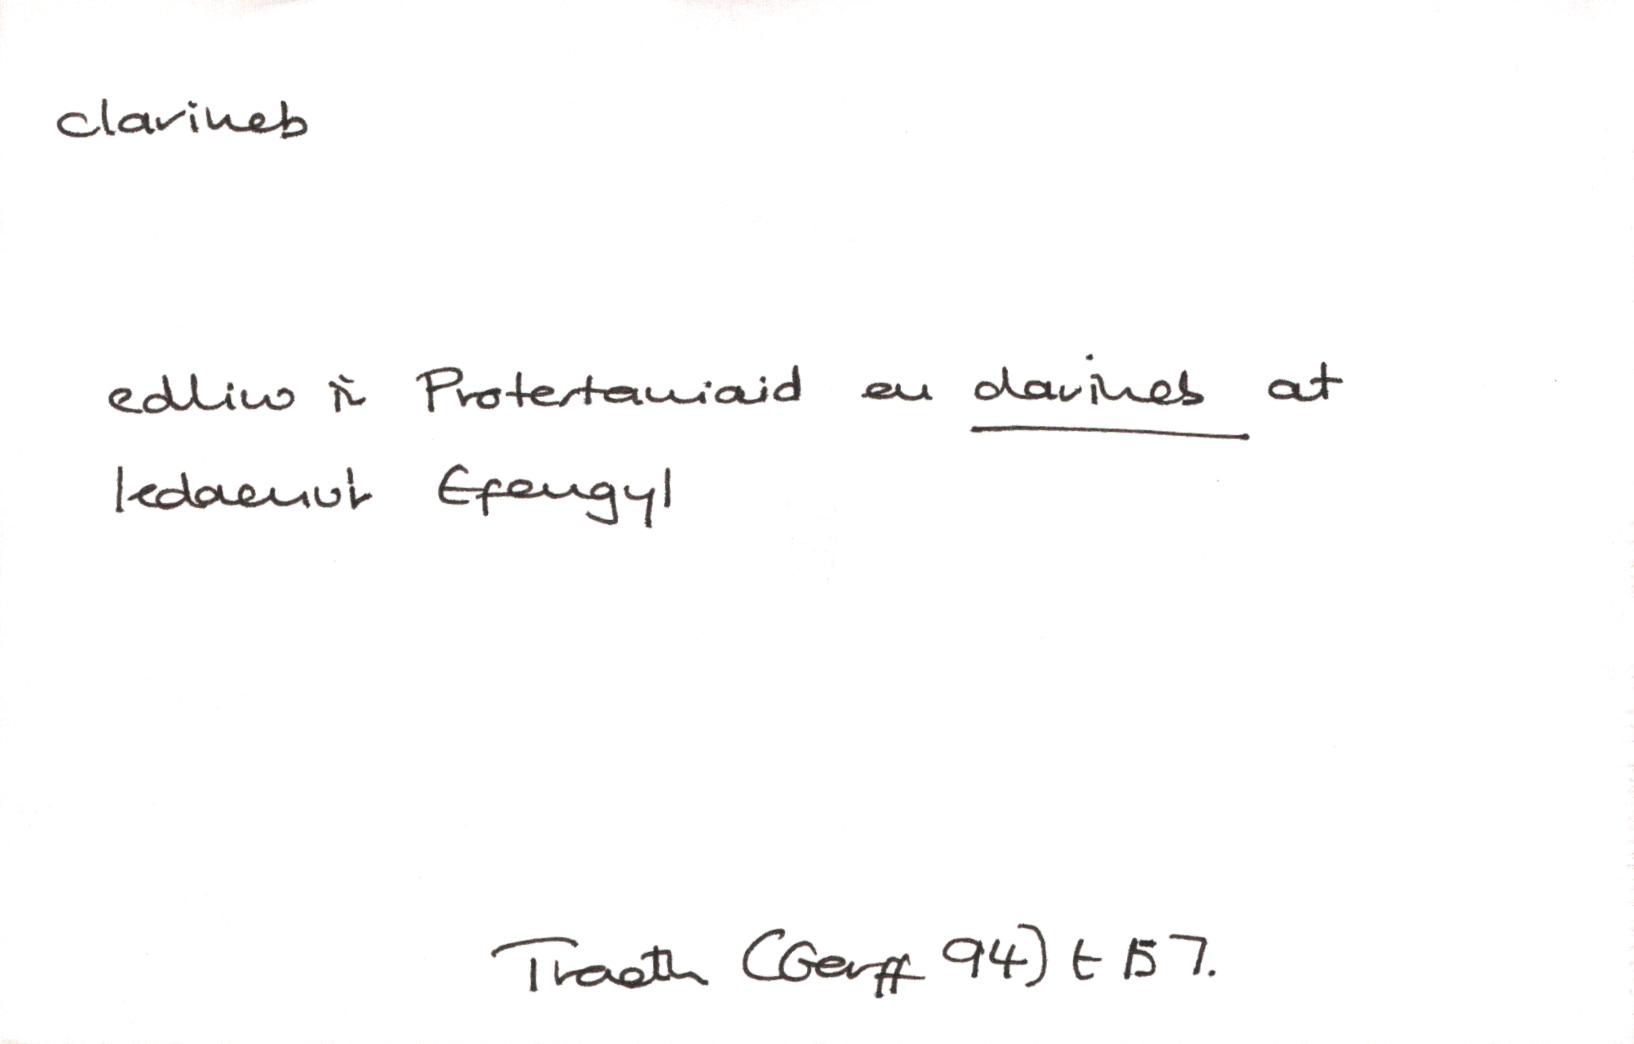 clarineb
edliw i'r Protestaniaid eu clarineb at
ledaenu'r Efengyl
Traeth (Gorff 94) t 157.